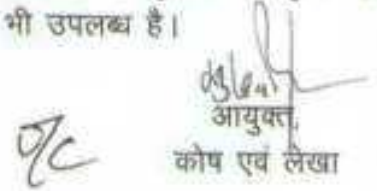 भी उपलब्ध है।
आयुक्त,
कोष एवं लेखा
O/C